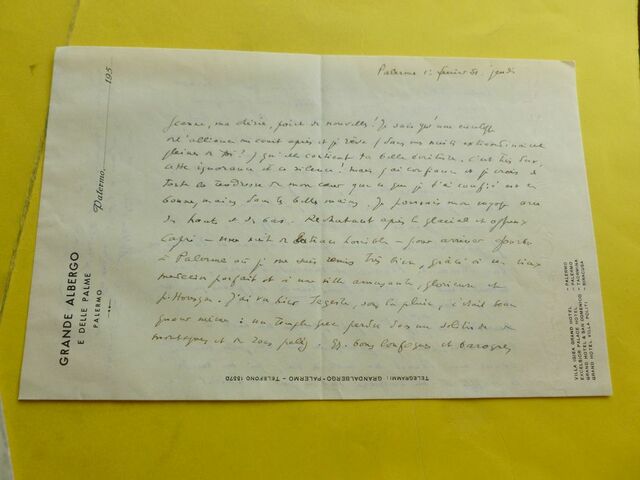 Palermo 1er février 51. jeudi
Jeanne, ma chérie, point de nouvelles! Je sais qu'une enveloppe
court après et je rêve (dans mes nuits extraordinairement
pleines de toi!) qu'elle contient ta belle écriture. c'est très dur,
cette ignorance et ce silence! Mais j'ai confiance et je crois de
toute la tendresse de mon cœur que ce que je t'ai confié est en
bonnes mains dans tes belles mains. Je poursuis mon voyage avec
des hauts et des bas. après le glacial et affreux
Capri - une nuit de bateau horrible - pour arriver
à Palerme où je me suis remis très bien, grâce à un vieux
médecin parfait et à une ville amusante, glorieuse et
J'ai vu hier Segeste, sous la pluie, c'était
quand même: un temple grec perdu dans une solitude de
montagnes et de . Et baroques
GRANDE ALBERGO
E DELLE PALME
PALERMO
Palermo, 195
TELEGRAMMI: GRANDALBERGO-PALERMO - TELEFONO 15570
VILLA IGIEA GRAND HOTEL - PALERMO
EXCELSIOR PALACE HOTEL - PALERMO
GRAND HOTEL & SAN DOMENICO - TAORMINA
GRAND HOTEL VILLA POLITI - SIRACUSA